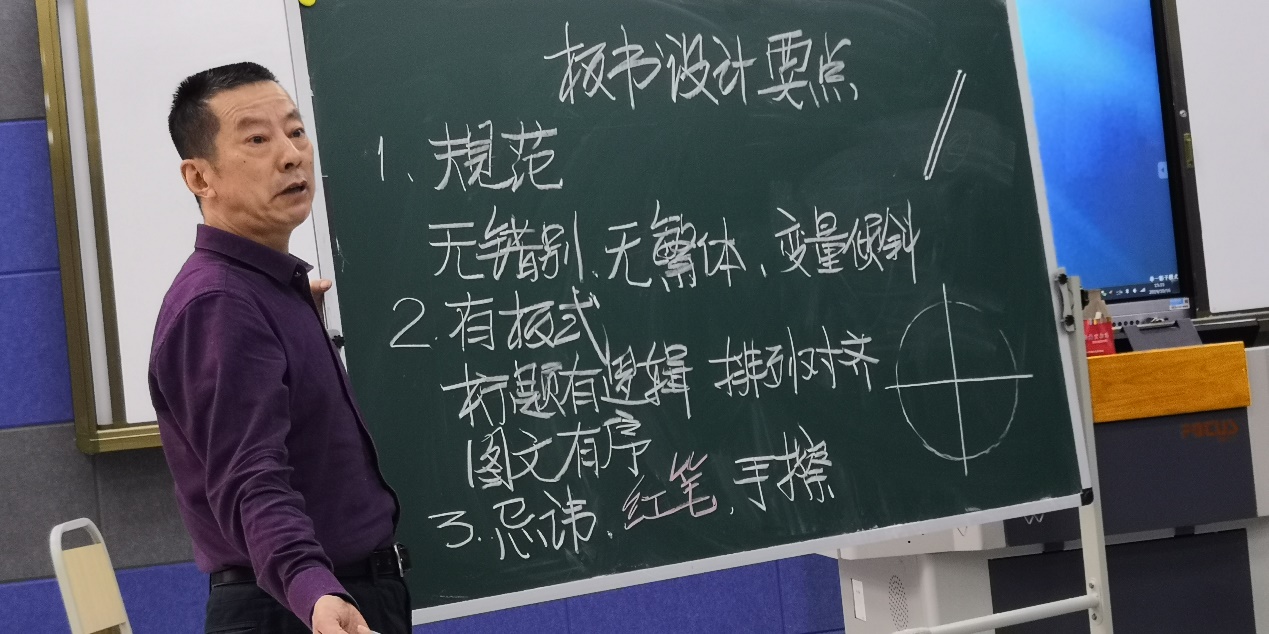 板书设计要点
1、规范
无错别、无繁体、变量倾斜
2.有板式
标题有逻辑 排列对齐
图文有序
3.忌讳、红笔、手擦
FOCUS